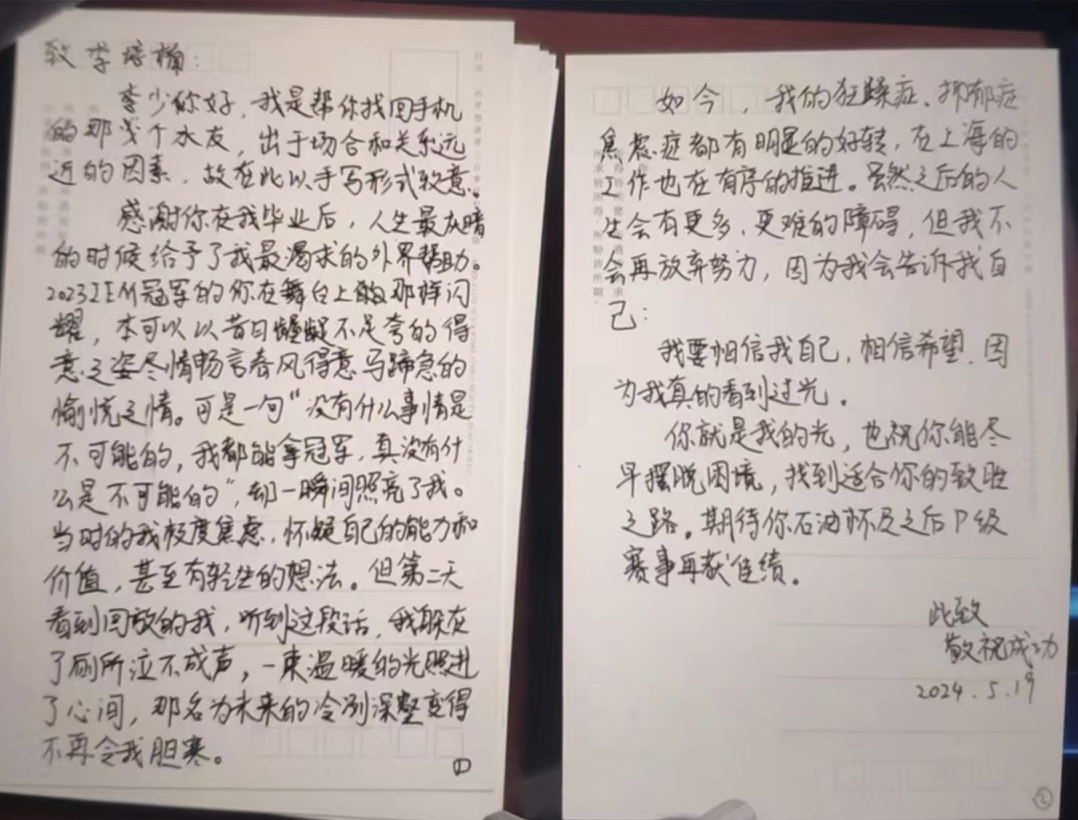 致李培楠:
李少你好，我是帮你找回手机
的那几个水友，出于场合和关系远
近的因素，故在此以手写形式致意。
感谢你在我毕业后，人生最灰暗
的时候给予了我最渴求的外界帮助。
2023IEM冠军的你在舞台上的那样闪
耀，本可以以昔日龌龊不足夸的得
意之姿尽情畅言春风得意马蹄急的
愉悦之情。可是一句“没有什么事情是
不可能的，我都能拿冠军，真没有什
么是不可能的”，却一瞬间照亮了我。
当时的我极度焦虑，怀疑自己的能力和
价值，甚至有轻生的想法。但第二天
看到回放的我，听到这段话，我躲在
了厕所泣不成声，一束温暖的光照进
了心间，那名为未来的冷冽深壑变得
不再令我胆寒。
①
如今，我的狂躁症、抑郁症
焦虑症都有明显的好转，在上海的
工作也在有序的推进。虽然之后的人
生会有更多、更难的障碍，但我不
会再放弃努力，因为我会告诉我自
己:
我要相信我自己，相信希望，因
为我真的看到过光。
你就是我的光，也祝你能尽
早摆脱困境，找到适合你的致胜
之路。期待你石油杯及之后P级
赛事再获佳绩。
此致
敬祝成功
2024.5.19
②